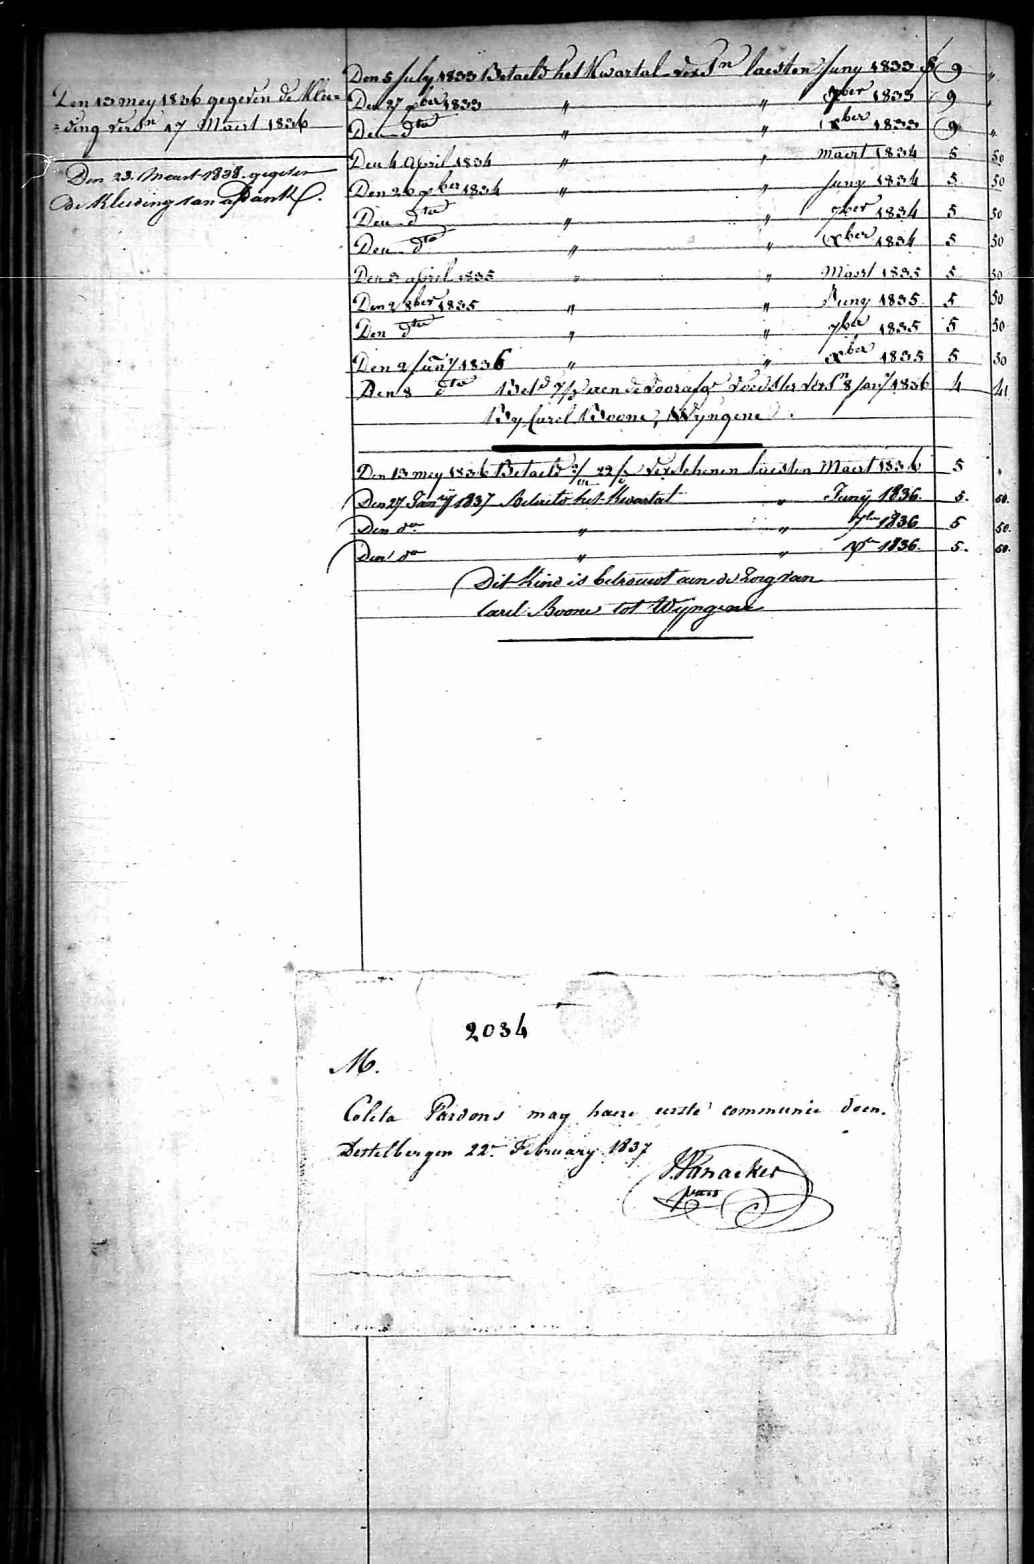 Den 13 mey 1836 gegeven de Klee=
=ding vers.n 17 Maert 1836
Den 23. Maart 1838. gegeven
de Kleeding van
Den 5 july 1833 Betaeld het Kwartal vers.n laesten Juny 1833 9 "
Den 27 9ber 1833 " " 7ber 1833 9 "
Den dto " " Xber 1833 9 "
Den 4 April 1834 " " maert 1834 5 50
Den 26 9ber 1834 " " Juny 1834 5 50
Den dto " " 7ber 1834 5 50
Den dto " " Xber 1834 5 50
Den 3 april 1835 " " Maert 1835 5 50
Den 2 8ber 1835 " " Juny 1835 5 50
Den dto " " 7ber 1835 5 50
Den 2 Jany 1836 " " Xber 1835 5 50
Den 8 dto Bet.d aen de voorafg.e voedster vers.n 8 Jany 1836 4 41
By Carel Boone, Wyngene.
Den 13 mey 1836 Betaeld 22 verschenen laesten Maert 1836 5 "
Den 27 Jan.ry 1837 Betaeld het Kwartal " Juny 1836. 5. 50.
Den do " " 7br 1836 5 50.
Den do " " Xr 1836. 5. 50.
Dit Kind is betrouwt aen de Zorg van
Carel Boone tot Wyngene
2034
M.
Coleta Pardons mag haere eerste communie doen.
Destelbergen 22.e February 1837
J. Vanacker
past.r